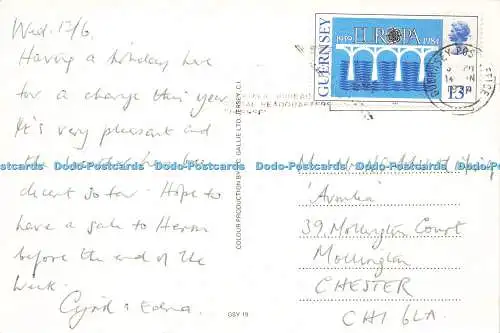 Wed. 13/6,
Having a holiday here
for a change this year.
It's very pleasant and
the weather has been
decent so far. Hope to
have a sail to Herm
before the end of the
week.
Cyril & Edna.
COLOUR PRODUCTION BY
SALLIE LTD. JERSEY, C.I.
GSY 19
GUERNSEY
1959 EUROPA 1984
13P
GUERNSEY POST
14
HEADQUARTERS
Dodo-Postcards Dodo-Postcards Dodo-Postcards Dodo-Postcards Dodo-Postcards Dodo-Postcards Dodo-Postcards
39, Mollington Court
Mollington
CHESTER
CH1 6LA.